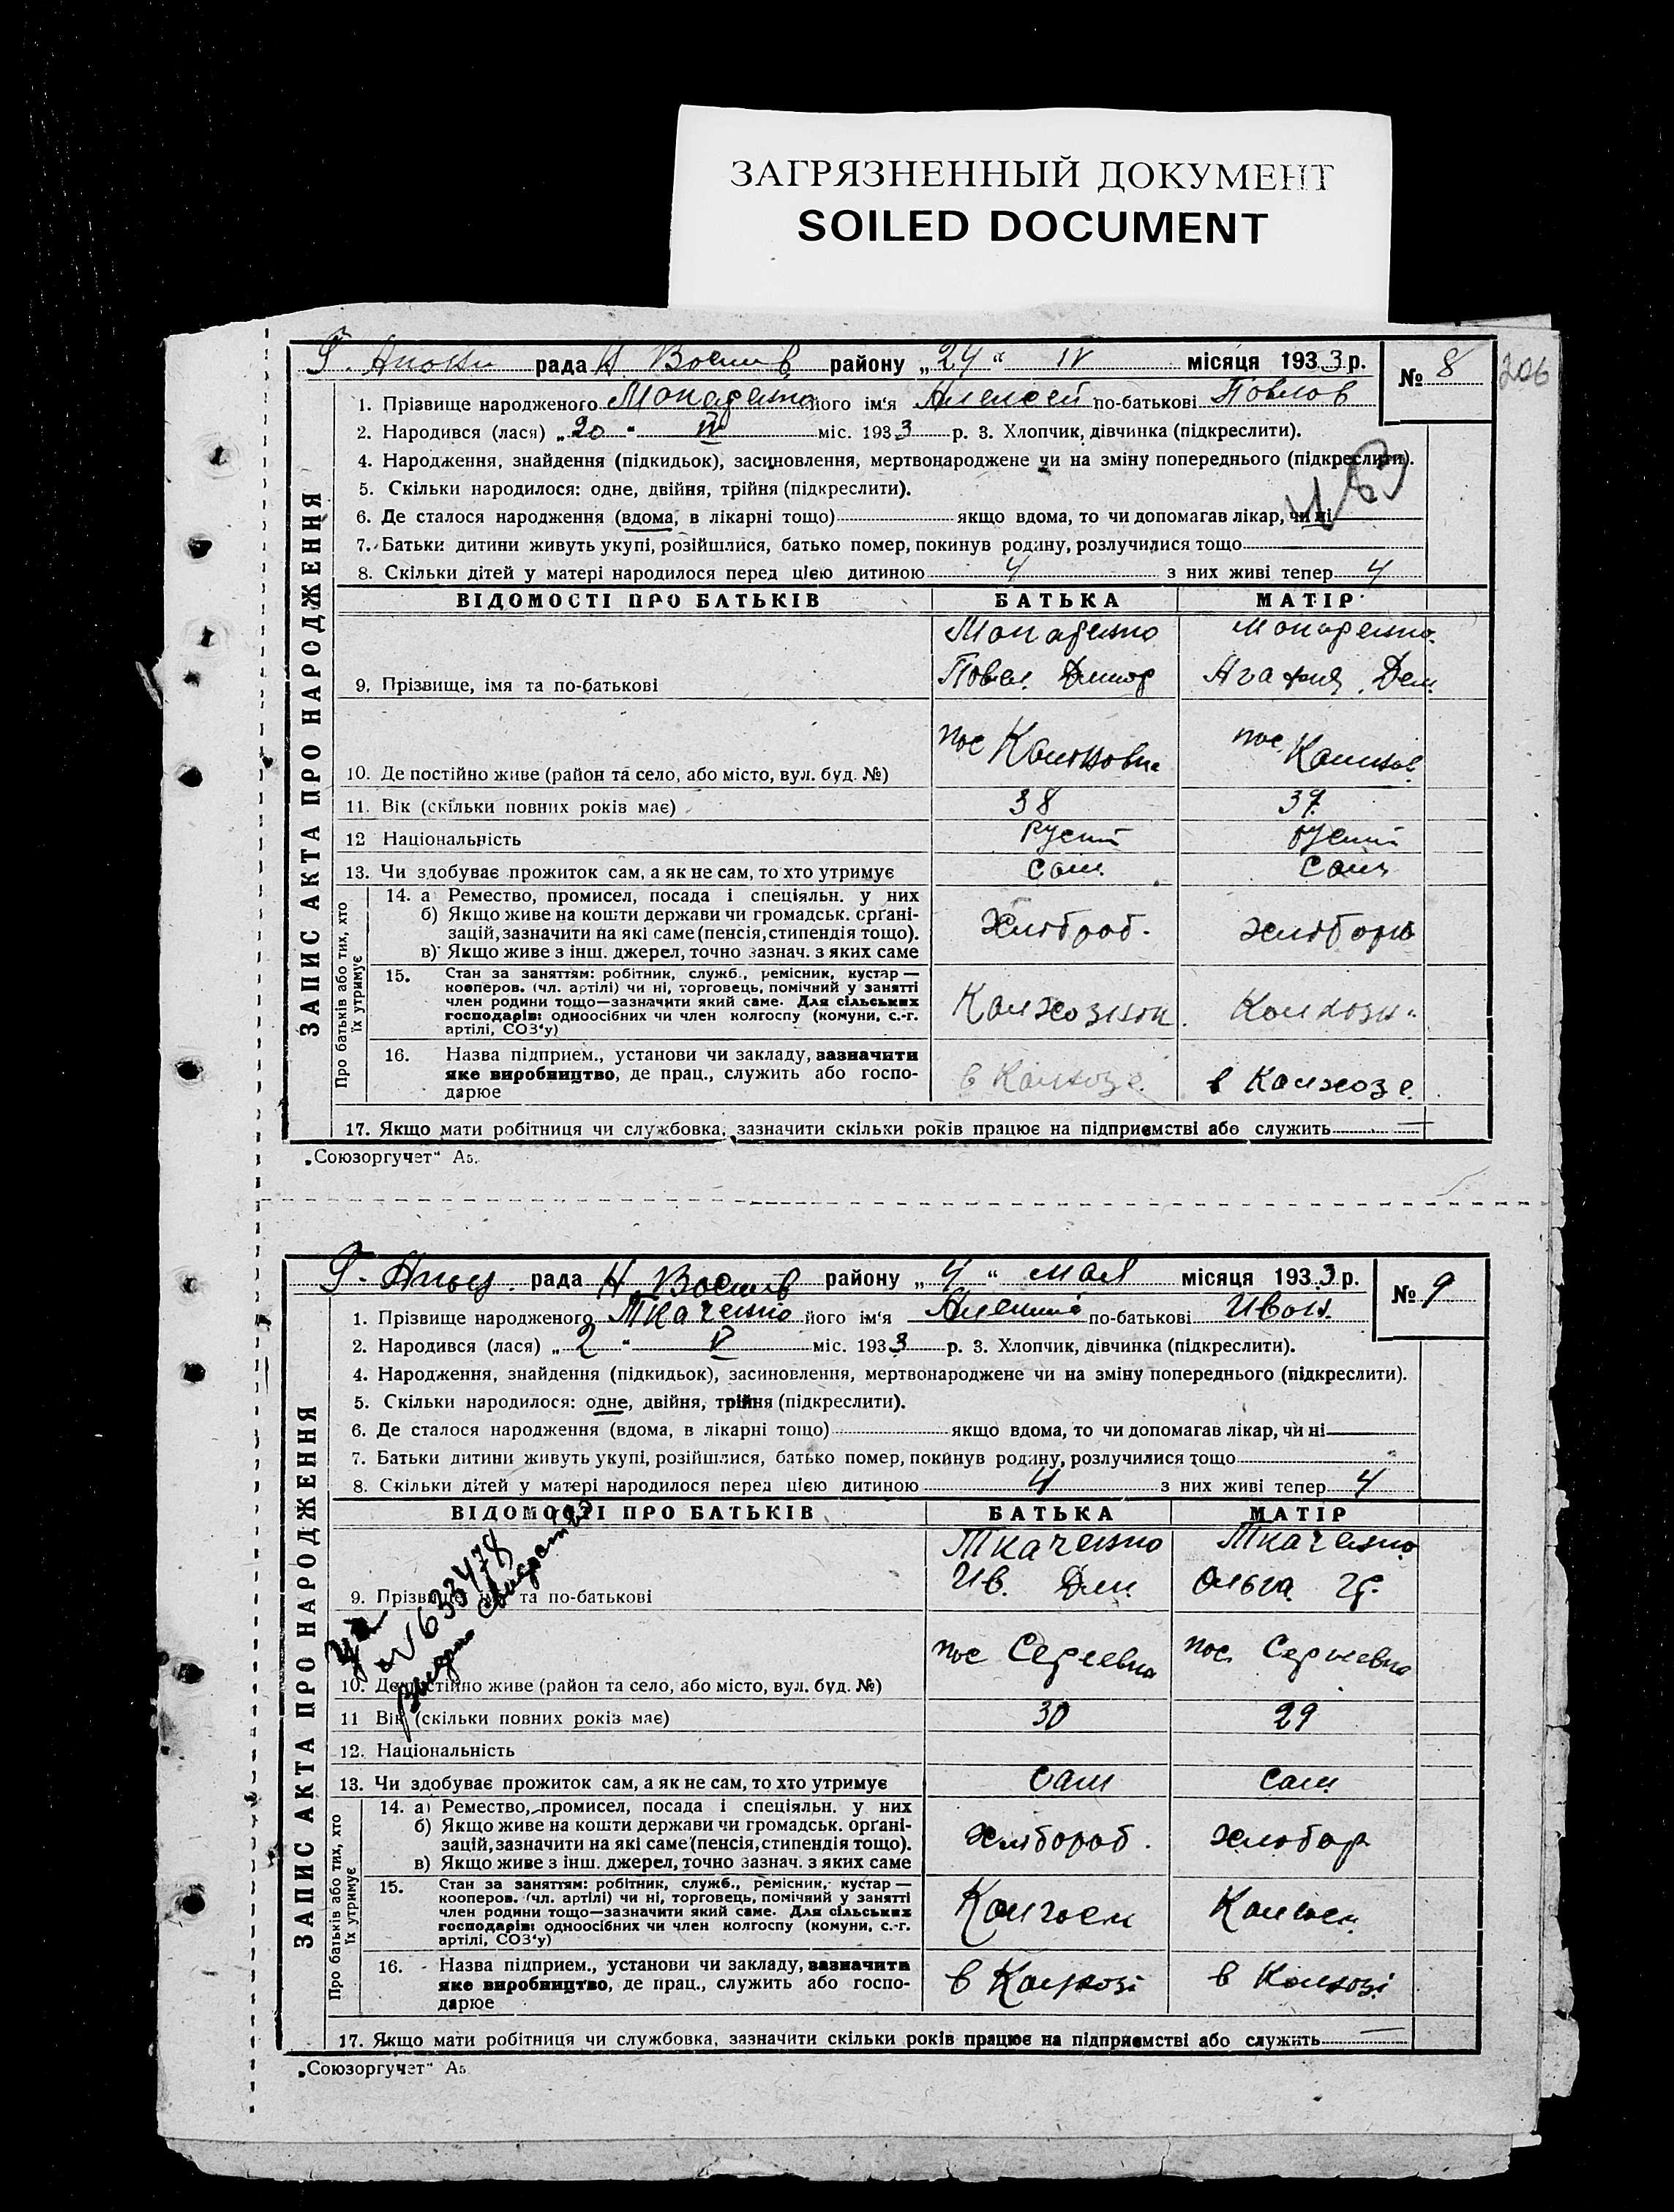 ЗАГРЯЗНЕННЫЙ ДОКУМЕНТ
SOILED DOCUMENT
206
рада Н. район у „24“ IV місяця 1933 р. № 8
ЗАПИС АКТА ПРО НАРОДЖЕННЯ
1. Прізвище народженого його ім'я Алексей по-батькові Павлов
2. Народився (лася) „20“ IV міс. 1933 р. 3. Хлопчик, дівчинка (підкреслити).
4. Народження, знайдення (підкидьок), засиновлення, мертвонароджене чи на зміну попереднього (підкреслити).
5. Скільки народилося: одне, двійня, трійня (підкреслити).
6. Де сталося народження (вдома, в лікарні тощо) якщо вдома, то чи допомагав лікар, чи ні
7. Батьки дитини живуть укупі, розійшлися, батько помер, покинув родину, розлучилися тощо
8. Скільки дітей у матері народилося перед цією дитиною 4 з них живі тепер 4
ВІДОМОСТІ ПРО БАТЬКІВ БАТЬКА МАТІР
9. Прізвище, імя та по-батькові Павел Агафия Дем.
10. Де постійно живе (район та село, або місто, вул. буд. №) пос пос
11. Вік (скільки повних років має) 38 37
12 Національність
13. Чи здобуває прожиток сам, а як не сам, то хто утримує сам сам
Про батьків або тих, хто
їх утримує
14. а) Ремество, промисел, посада і спеціяльн. у них
б) Якщо живе на кошти держави чи громадськ. орґані-
зацій, зазначити на які саме (пенсія, стипендія тощо). хлібороб. хлібороб
в) Якщо живе з інш. джерел, точно зазнач. з яких саме
15. Стан за заняттям: робітник, служб., ремісник, кустар —
кооперов. (чл. артілі) чи ні, торговець, помічний у занятті
член родини тощо—зазначити який саме. Для сільських
господарів: одноосібних чи член колгоспу (комуни, с.-г.
артілі, СОЗ'у)
16. Назва підприєм., установи чи закладу, зазначити
яке виробництво, де прац., служить або госпо- в Колхозе в Колхозе
дарює
17. Якщо мати робітниця чи службовка, зазначити скільки років працює на підприємстві або служить —
„Союзоргучет“ А5.
рада Н. району „4“ мая місяця 1933 р. № 9
ЗАПИС АКТА ПРО НАРОДЖЕННЯ
1. Прізвище народженого Ткаченко його ім'я по-батькові Иван.
2. Народився (лася) „2“ V міс. 1933 р. 3. Хлопчик, дівчинка (підкреслити).
4. Народження, знайдення (підкидьок), засиновлення, мертвонароджене чи на зміну попереднього (підкреслити).
5. Скільки народилося: одне, двійня, трійня (підкреслити).
6. Де сталося народження (вдома, в лікарні тощо) якщо вдома, то чи допомагав лікар, чи ні
7. Батьки дитини живуть укупі, розійшлися, батько помер, покинув родину, розлучилися тощо
8. Скільки дітей у матері народилося перед цією дитиною 4 з них живі тепер 4
ВІДОМОСТІ ПРО БАТЬКІВ БАТЬКА МАТІР
Ткаченко Ткаченко
9. Прізвище, імя та по-батькові Ив. Дем. Ольга Гр.
633478
10. Де постійно живе (район та село, або місто, вул. буд. №) пос Сергеевка пос. Сергеевка
11 Вік (скільки повних років має) 30 29
12. Національність
13. Чи здобуває прожиток сам, а як не сам, то хто утримує сам сам
Про батьків або тих, хто
їх утримує
14. а) Ремество, промисел, посада і спеціяльн. у них
б) Якщо живе на кошти держави чи громадськ. орґані-
зацій, зазначити на які саме (пенсія, стипендія тощо). хлібороб. хлібор
в) Якщо живе з інш. джерел, точно зазнач. з яких саме
15. Стан за заняттям: робітник, служб., ремісник, кустар —
кооперов. (чл. артілі) чи ні, торговець, помічний у занятті
член родини тощо—зазначити який саме. Для сільських
господарів: одноосібних чи член колгоспу (комуни, с.-г.
артілі, СОЗ'у)
16. Назва підприєм., установи чи закладу, зазначити
яке виробництво, де прац., служить або госпо- в Колхозі в Колхозі
дарює
17. Якщо мати робітниця чи службовка, зазначити скільки років працює на підприємстві або служить —
„Союзоргучет“ А5